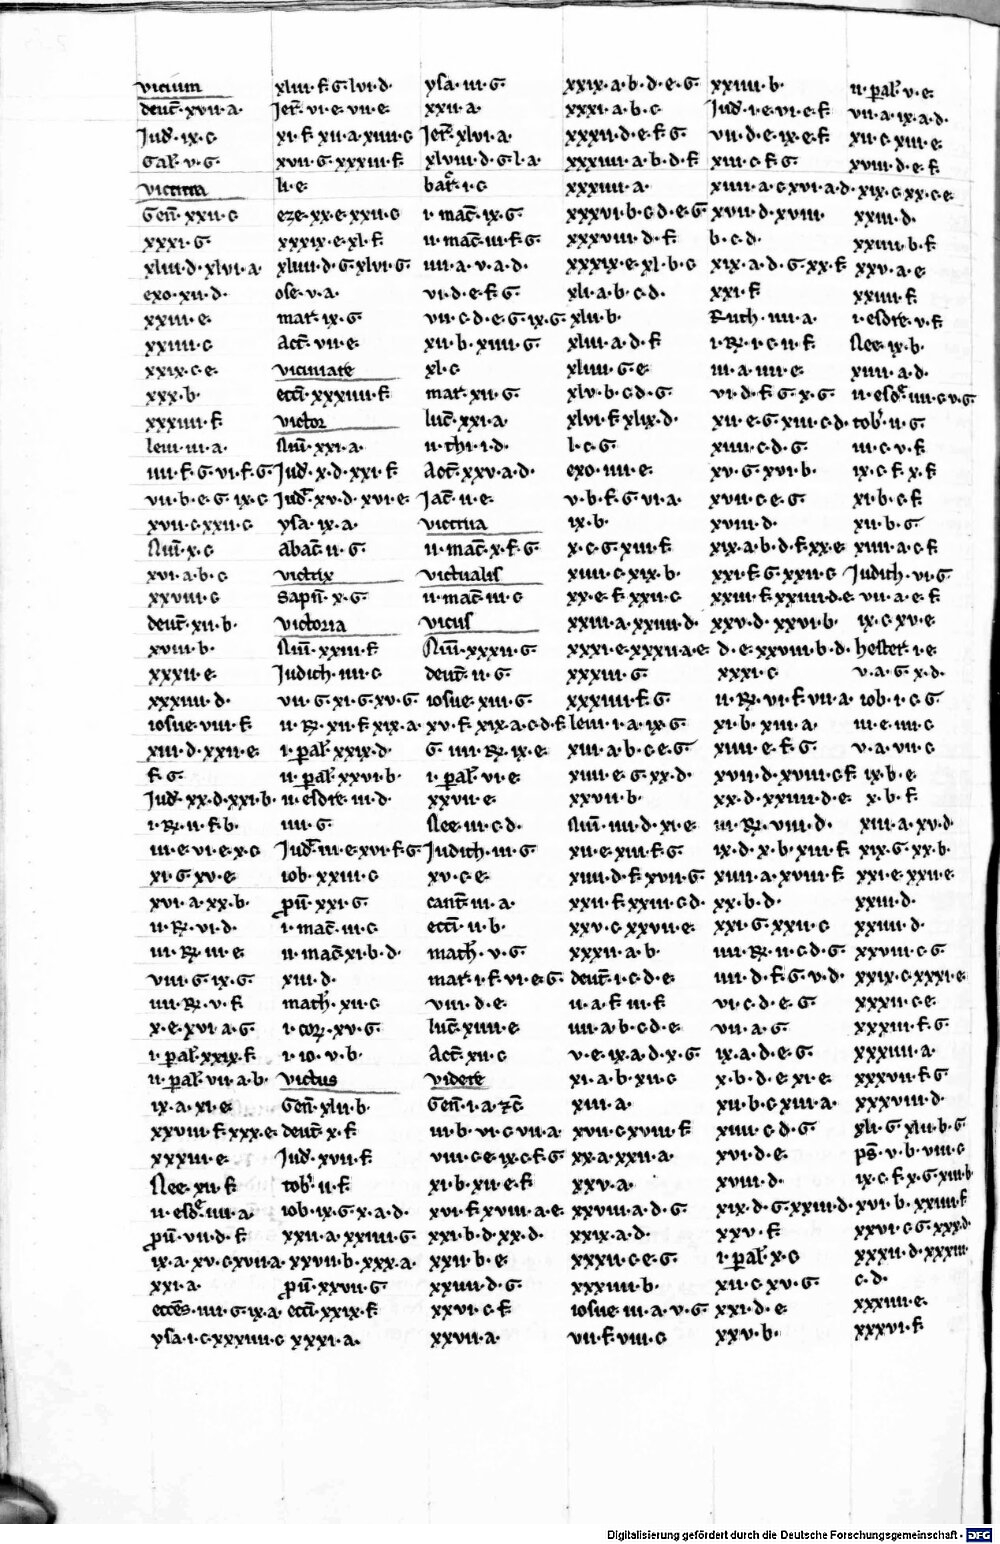 vicium
deut̄·xvii·a·
Jud̄·ix·c·
Gal̄·v·G·
victima
Gen̄·xxii·c
xxxi·G·
xliii·d·xlvi·a·
exo·xii·d·
xxiii·e·
xxiiii·c
xxix·c·e·
xxx·b·
xxxiiii·f·
leui·iii·a·
iiii·f·G·vi·f·G·
vii·b·e·G·ix·c
xvii·c·xxii·c
Nūi·x·c
xvi·a·b·c
xxviii·c
deut̄·xii·b·
xviii·b·
xxxii·e·
xxxiii·d·
iosue·viii·f·
xiii·d·xxii·e·
f·G·
Jud̄·xx·d·xxi·b·
i·R·ii·f·b·
iii·e·vi·e·x·c
xi·G·xv·e·
xvi·a·xx·b·
ii·R·vi·d·
iii·R·iii·e·
viii·G·ix·G·
iiii·R·v·f·
x·e·xvi·a·G·
i·pal̄·xxix·f·
ii·pal̄·vii·a·b·
ix·a·xi·e·
xxviii·f·xxx·e·
xxxiii·e·
Nee·xii·f·
ii·esd·iiii·a·
p̄u·vii·d·f·
ix·a·xv·c·xvii·a·
xxi·a·
ecces·iiii·G·ix·a·
ysa·i·c·xxxiiii·c
xliii·f·G·lvi·d·
Jer̄·vi·e·vii·e·
xi·f·xii·a·xiiii·c
xvii·G·xxxiii·f·
li·e·
eze·xx·e·xxii·c
xxxix·e·xl·f·
xliiii·d·G·xlvi·G·
ose·v·a·
mar̄·ix·G·
Act̄·vii·e·
viciniate
ecc̄i·xxxiiii·f·
victor
Nūi·xxi·a·
Jud̄·x·d·xxi·f·
Jud̄·xv·d·xvi·e·
ysa·ix·a·
abac̄·ii·G·
victrix
Sapn̄·x·G·
victoria
Nūi·xxiii·f·
Judich·iiii·c
vii·G·xi·G·xv·G·
ii·R·xii·f·xix·a·
i·pal̄·xxix·d·
ii·pal̄·xxvi·b·
ii·esdre·iii·d·
iiii·G·
Jud̄·iii·e·xvi·f·G·
iob·xxiii·c
p̄u·xxi·G·
i·mac̄·iii·c
ii·mac̄·xi·b·d·
xiii·d·
math̄·xii·c
i·cor·xv·G·
i·io·v·b·
victus
Gen̄·xlii·b·
deut̄·x·f·
Jud̄·xvii·f·
tob̄·ii·f·
iob·ix·G·x·a·d·
xxii·a·xxiiii·G·
xxvii·b·xxx·a·
p̄u·xxvii·G·
ecc̄i·xxix·f·
xxxi·a·
ysa·iii·G·
xxii·a·
Jer̄·xlvi·a·
xlviii·d·G·l·a·
bar·i·c
i·mac̄·ix·G·
ii·mac̄·iii·f·G·
iiii·a·v·a·d·
vi·d·e·f·G·
vii·c·d·e·G·ix·G·
xii·b·xiiii·G·
xl·c
mar̄·xii·G·
luc̄·xxi·a·
ii·thi·i·d·
Act̄·xxv·a·d·
Jac̄·ii·e·
victria
ii·mac̄·x·f·G·
victualis
ii·mac̄·iii·c
vicus
Nūi·xxxii·G·
deut̄·ii·G·
iosue·xiii·G·
xv·f·xix·a·c·d·f·
G·iiii·R·ix·e·
i·pal̄·vi·e·
xxvii·e·
Nee·iii·c·d·
Judich·iii·G·
xv·c·e·
cant̄·iii·a·
ecc̄i·ii·b·
math̄·v·G·
mar̄·i·f·vi·e·G·
viii·d·e·
luc̄·xiiii·e·
Act̄·xii·c
videre
Gen̄·i·a·zc̄·
iii·b·vi·c·vii·a·
viii·c·e·ix·c·f·G·
xi·b·xii·e·f·
xvi·f·xviii·a·e·
xxi·b·d·xx·d·
xxii·b·e·
xxiiii·d·G·
xxvi·c·f·
xxvii·a·
xxix·a·b·d·e·G·
xxxi·a·b·c
xxxii·d·e·f·G·
xxxiii·a·b·d·f·
xxxiiii·a·
xxxvi·b·c·d·e·G·
xxxviii·d·f·
xxxix·e·xl·b·c
xli·a·b·c·d·
xlii·b·
xliii·a·d·f·
xliiii·G·e·
xlv·b·c·d·G·
xlvi·f·xlix·d·
l·c·G·
exo·iiii·e·
v·b·f·G·vi·a·
ix·b·
x·c·G·xiii·f·
xiiii·c·xix·b·
xx·e·f·xxii·c
xxiii·a·xxiiii·d·
xxxi·e·xxxii·a·e·
xxxiii·G·
xxxiiii·f·G·
leui·i·a·ix·G·
xiii·a·b·c·e·G·
xiiii·e·G·xx·d·
xxvii·b·
Nūi·iiii·d·xi·e·
xii·e·xiii·f·G·
xiiii·d·f·xvii·G·
xxii·f·xxiii·c·d·
xxv·c·xxvii·e·
xxxii·a·b·
deut̄·i·c·d·e·
ii·a·f·iii·f·
iiii·a·b·c·d·e·
v·e·ix·a·d·x·G·
xi·a·b·xii·c
xiii·a·
xvii·c·xviii·f·
xx·a·xxii·a·
xxv·a·
xxviii·a·d·G·
xxix·a·d·
xxxii·c·e·G·
xxxiiii·b·
iosue·iii·a·v·G·
vii·f·viii·c
xxiiii·b·
Jud̄·i·e·vi·e·f·
vii·d·e·ix·e·f·
xiii·c·f·G·
xiiii·a·c·xvi·a·d·
xvii·d·xviii·
b·c·d·
xix·a·d·G·xx·f·
xxi·f·
Ruth·iiii·a·
i·R·i·c·ii·f·
iii·a·iiii·e·
vi·d·f·G·x·G·
xii·e·G·xiii·c·d·
xiiii·c·d·G·
xv·G·xvi·b·
xvii·c·e·G·
xviii·d·
xix·a·b·d·f·xx·e·
xxi·f·G·xxii·c
xxiii·f·xxiiii·d·e·
xxv·d·xxvi·b·
d·e·xxviii·b·d·
xxxi·c
ii·R·vi·f·vii·a·
xi·b·xiii·a·
xiiii·e·f·G·
xvii·d·xviii·c·f·
xx·d·xxiiii·d·e·
iii·R·viii·d·
ix·d·x·b·xiii·f·
xiiii·a·xviii·f·
xx·b·d·
xxi·G·xxii·c
iiii·R·ii·c·d·G·
iiii·d·f·G·v·d·
vi·c·d·e·G·
vii·a·G·
ix·a·d·e·G·
x·b·d·e·xi·e·
xii·b·c·xiii·a·
xiiii·c·d·G·
xvi·d·e·
xviii·d·
xix·d·G·xxiii·d·
xxv·f·
i·pal̄·x·c
xii·c·xv·G·
xxi·d·e·
xxv·b·
ii·pal̄·v·e·
vii·a·ix·a·d·
xii·c·xiii·e·
xviii·d·e·f·
xix·c·xx·c·e·
xxiii·d·
xxiiii·b·f·
xxv·a·e·
xxiiii·f·
i·esdre·v·f·
Nee·ix·b·
xiii·a·d·
ii·esd·iiii·c·v·G·
tob̄·ii·G·
iii·c·v·f·
ix·c·f·x·f·
xi·b·c·f·
xii·b·G·
xiiii·a·c·f·
Judich·vi·G·
vii·a·e·f·
ix·c·xv·e·
hester·i·e·
v·a·G·x·d·
iob·i·c·G·
iii·e·iiii·c
v·a·vii·c
ix·b·e·
x·b·f·
xiii·a·xv·d·
xix·G·xx·b·
xxi·e·xxii·e·
xxiii·d·
xxiiii·d·
xxviii·c·G·
xxix·c·xxxi·e·
xxxii·c·e·
xxxiii·f·G·
xxxiiii·a·
xxxvii·f·G·
xxxviii·d·
xli·G·xlii·b·G·
ps̄·v·b·viii·c
ix·c·f·x·G·xiii·b·
xvi·b·xxiiii·f·
xxvi·c·G·xxx·d·
xxxii·d·xxxiii·
c·d·
xxxiiii·e·
xxxvi·f·
Digitalisierung gefördert durch die Deutsche Forschungsgemeinschaft - DFG